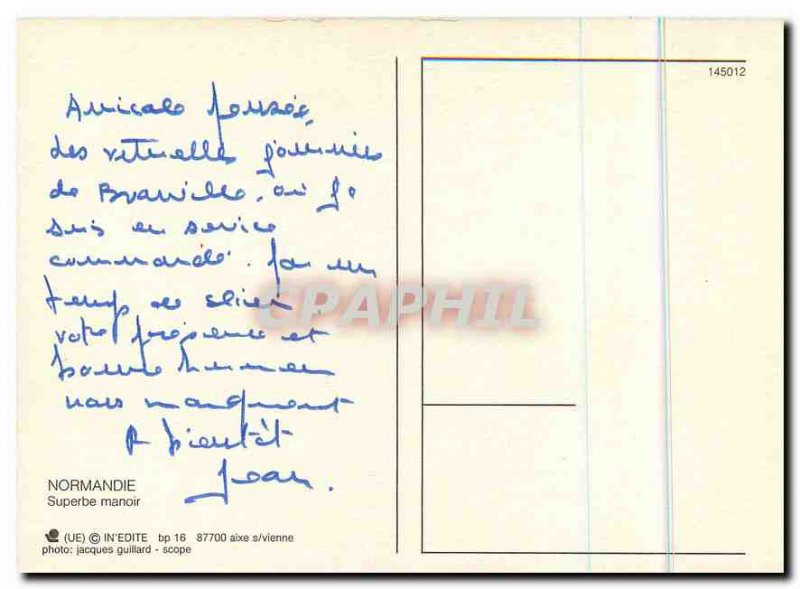 Amicale pensée,
des rituelles journées
de        où je
suis en service
commandé. Par un
temps de
votre présence et
bonne humeur
nous manquent
A bientôt
Jean.
NORMANDIE
Superbe manoir
(UE) © IN'EDITE bp 16 87700 aixe s/vienne
photo: jacques guillard - scope
145012
CPAPHIL